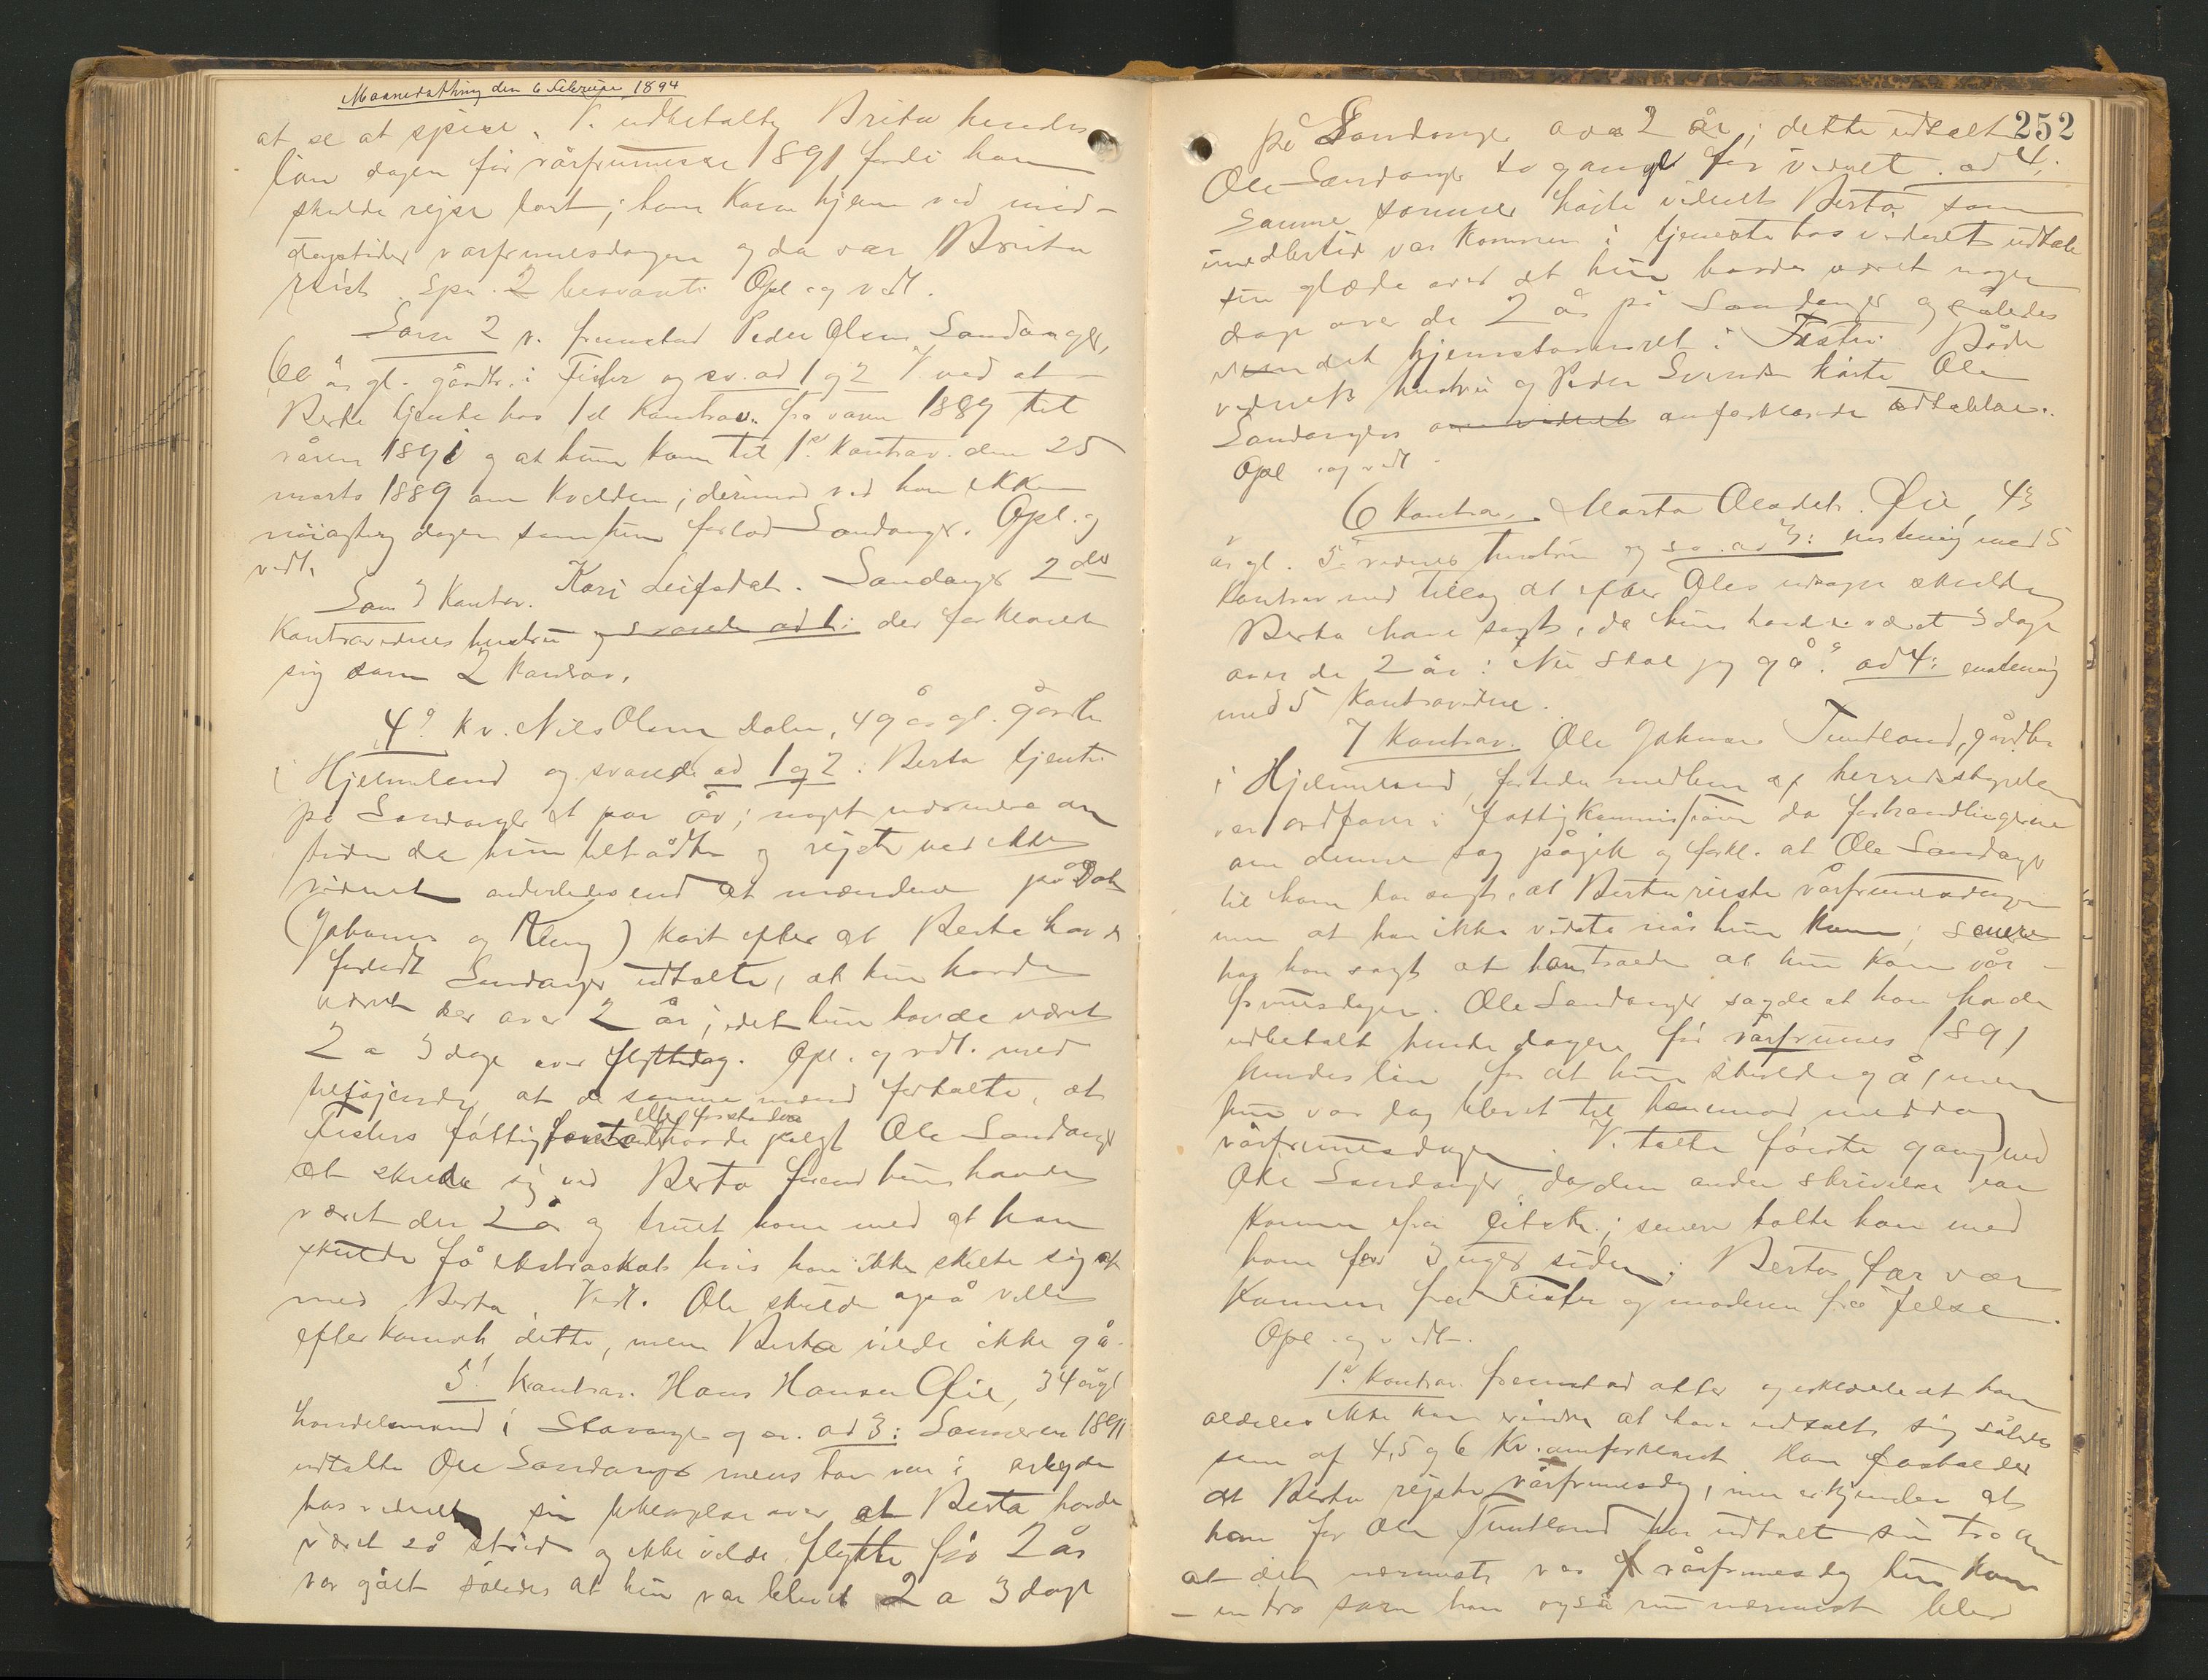 Maanedsthing den 6 februar 1894
at se at spise. V. udbetalte Brita hendes
løn dagen før vårfrumesse 1891 fordi han
skulde rejse bort; han kom hjem ved mid-
dagstider vårfruesdagen og da var Brita
reist. Spm. 2 besvart: Opl. og vedt.
Som 2 v. fremstod Peder Olsen Sandanger,
60 år gl. gårdbr. i Fister og sv. ad 1 og 2 V. ved at
Berta tjente hos 1ste kontrav. fra våren 1889 til
våren 1891 og at hun kom til 1ste kontrav. den 25
marts 1889 om kvelden; derimod ved han ikke
nøiagtig dagen som hun forlod Sandanger. Opl. og
vedt.
Som 3 kontrav. Kari Leifsdat. Sandanger 2det
kontravidnes hustru og svared ad 1: der forklaret
sig som 2 kontrav.
4de kv. Nils Olsen Dalen, 49 år gl. gårdbr.
i Hjelmeland og svared ad 1 og 2: Berta tjente
på Sandanger et par år; noget nærmere om
tiden da hun tiltrådte og rejste ved ikke
vidnet anderledes end at mændene på Dal
(Johannes og ) kort efter at Berta havde
forladt Sandanger udtalte, at hun havde
været der over 2 år; idet hun havde været
2 a 3 dage over flyttedag. Opl. og vedt. med
tilføjende at de samme mænd fortalte, at
Fisters fattigforstander eller forstandere havde pålagt Ole Sandanger
at skille sig ved Berta førend hun havde
været der 2 år og truet ham med at han
skulde få ekstraskat hvis han ikke skilte sig af
med Berta. Vedt. Ole skulde også ville
efterkomme dette, men Berta vilde ikke gå.
5te kontrav. Hans Hansen Øie, 34 årgl
handelsmand i Stavanger og sv. ad 3: Sommeren 1891
udtalte Ole Sandanger mens han var i arbejde
hos vidnet sin beklagelse over at Berta havde
været så strid og ikke vilde flytte før 2 år
var gået således at hun var blevet 2 a 3 dage
252
på Sandanger over 2 år; dette udtalt
Ole Sandanger to gange for vidnet. ad 4:
Samme sommer hørte vidnet Berta som
imidlertid var kommen i tjeneste hos vidnet udtale
sin glæde over at hun havde været nogen
dage over de 2 år på Sandanger og således
vundet hjemstavnsret i Fister. Både
vidnets hustru og Peder Svendsen hørte Ole
Sandangers omforklarede udtalelse.
Opl. og vedt.
6 kontrav. Marta Olesdat. Øie, 43
år gl. 5te vidnes hustru og sv. ad 3: enstemmig med 5
kontrav. med tillæg at efter Oles udsagn skulde
Berta have sagt, da hun havde været 3 dage
over de 2 år: "Nu skal jeg gå". ad 4: enstemmig
med 5 kontravidne.
7 kontrav. Ole Johnsen Tuntland, gårdbr.
i Hjelmeland, fortiden medlem af herredsstyrelsen
var ordfører i fattigkommissionen da forhandlingerne
om denne sag pågik og forkl. at Ole Sandanger
til ham har sagt, at Berta reiste vårfruesdagen
men at han ikke vidste når hun kom; senere
har han sagt at han troede at hun kom vår-
fruesdagen. Ole Sandanger sagde at han havde
udbetalt hende dagen før vårfrumes 1891
hendes løn for at hun skulde gå, men
hun var dog blevet til henimod middag
vårfruesdagen. V. talte første gang med
Ole Sandanger, da den anden skrivelse var
kommen fra citstn.; senere talte han med
ham for 3 uger siden; Bertas far var
kommen fra Fister og moderen fra Jelse.
Opl. og vedt.
1ste kontrav. fremstod atter og erklærede at han
aldeles ikke kan erindre at have udtalt sig således
som af 4, 5 og 6 Kv. omforklaret. Han fastholder
at Berta rejste vårfruesdag, men erkjender at
han for Ole Tuntland har udtalt sin tro om
at det nærmest var vårfruesdag hun kom
- en tro som han også nu nærmest blev